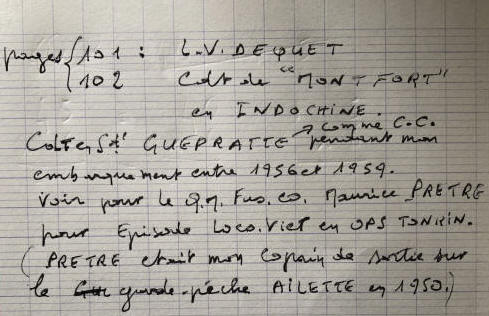 pages { 101 : L.V. DEQUET
102 Cdt de "MONTFORT"
en INDOCHINE.
comme C.C.
GUEPRATTE pendant mon
embarquement entre 1956 et 1959.
Voir pour le Q.M. Fus. Co. Maurice PRETRE
pour Episode Loco. Viet en OPS TONKIN.
(PRETRE etait mon copain de sortie sur
le garde-pêche AILETTE en 1950.)